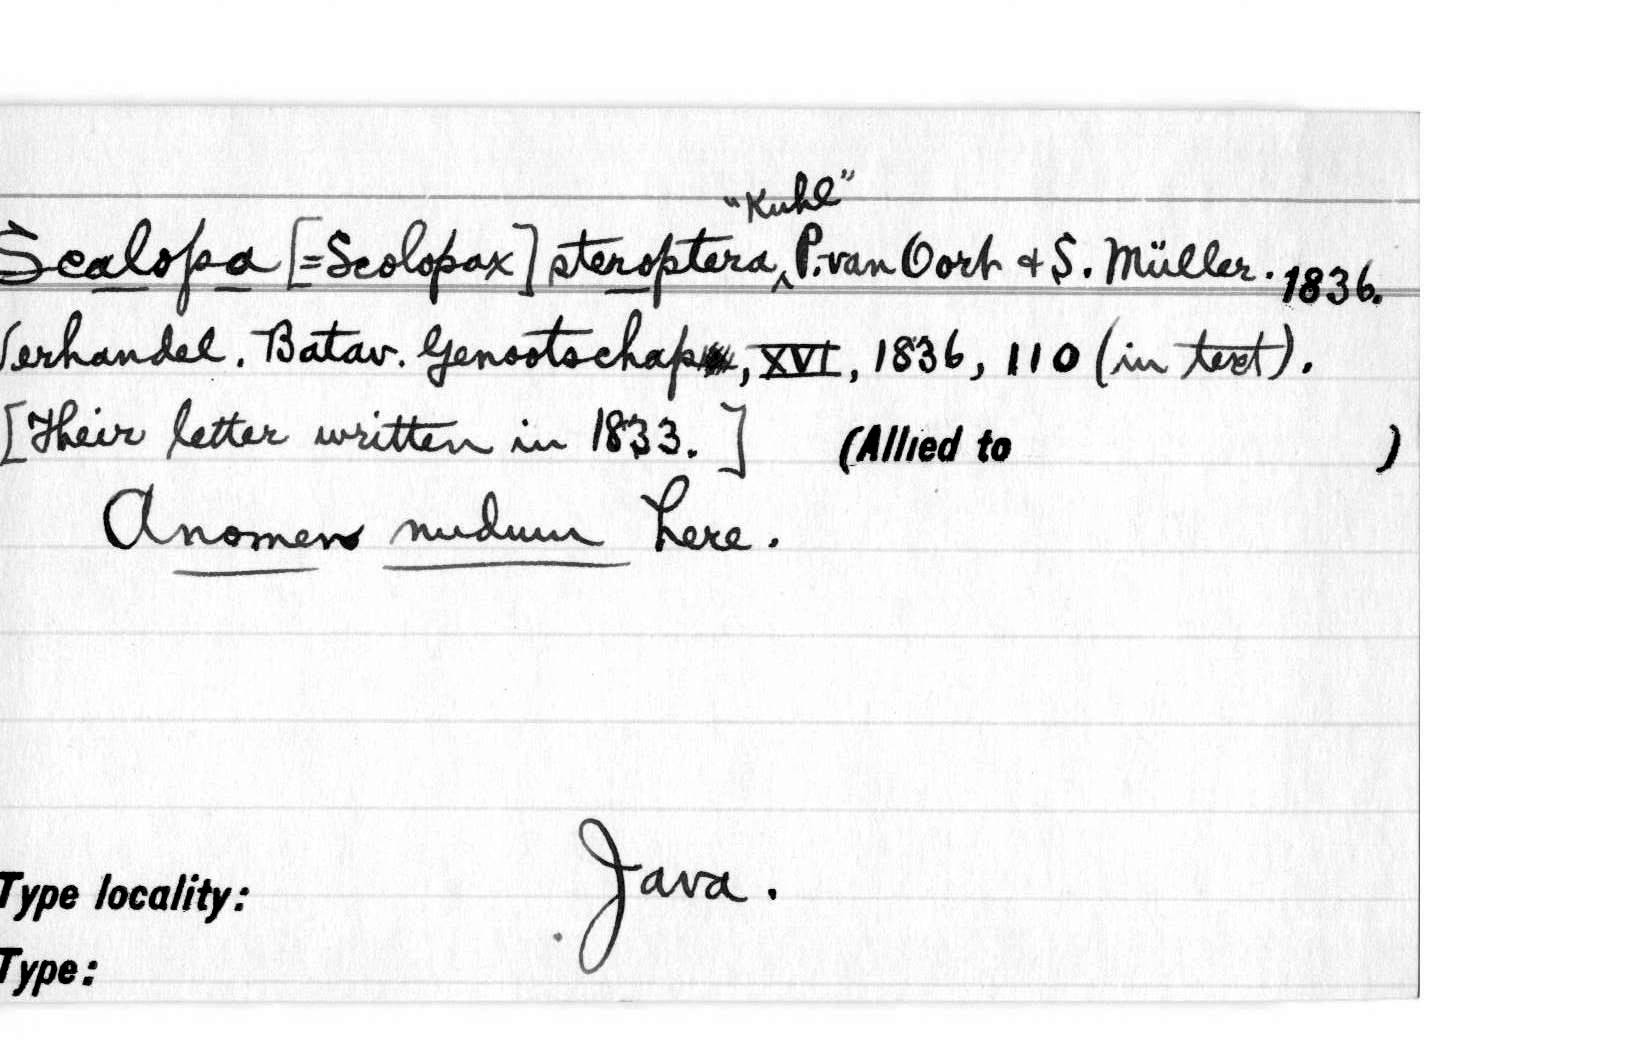 "Kuhl"
Scalopa [=Scolopax] steroptera, ^ P. van Oort & S. Müller. 1836.
Verhandel. Batav. Genootschap, XVI, 1836, 110 (in text).
[Their letter written in 1833.] (Allied to )
A nomen nudum here.
Type locality: Java.
Type: